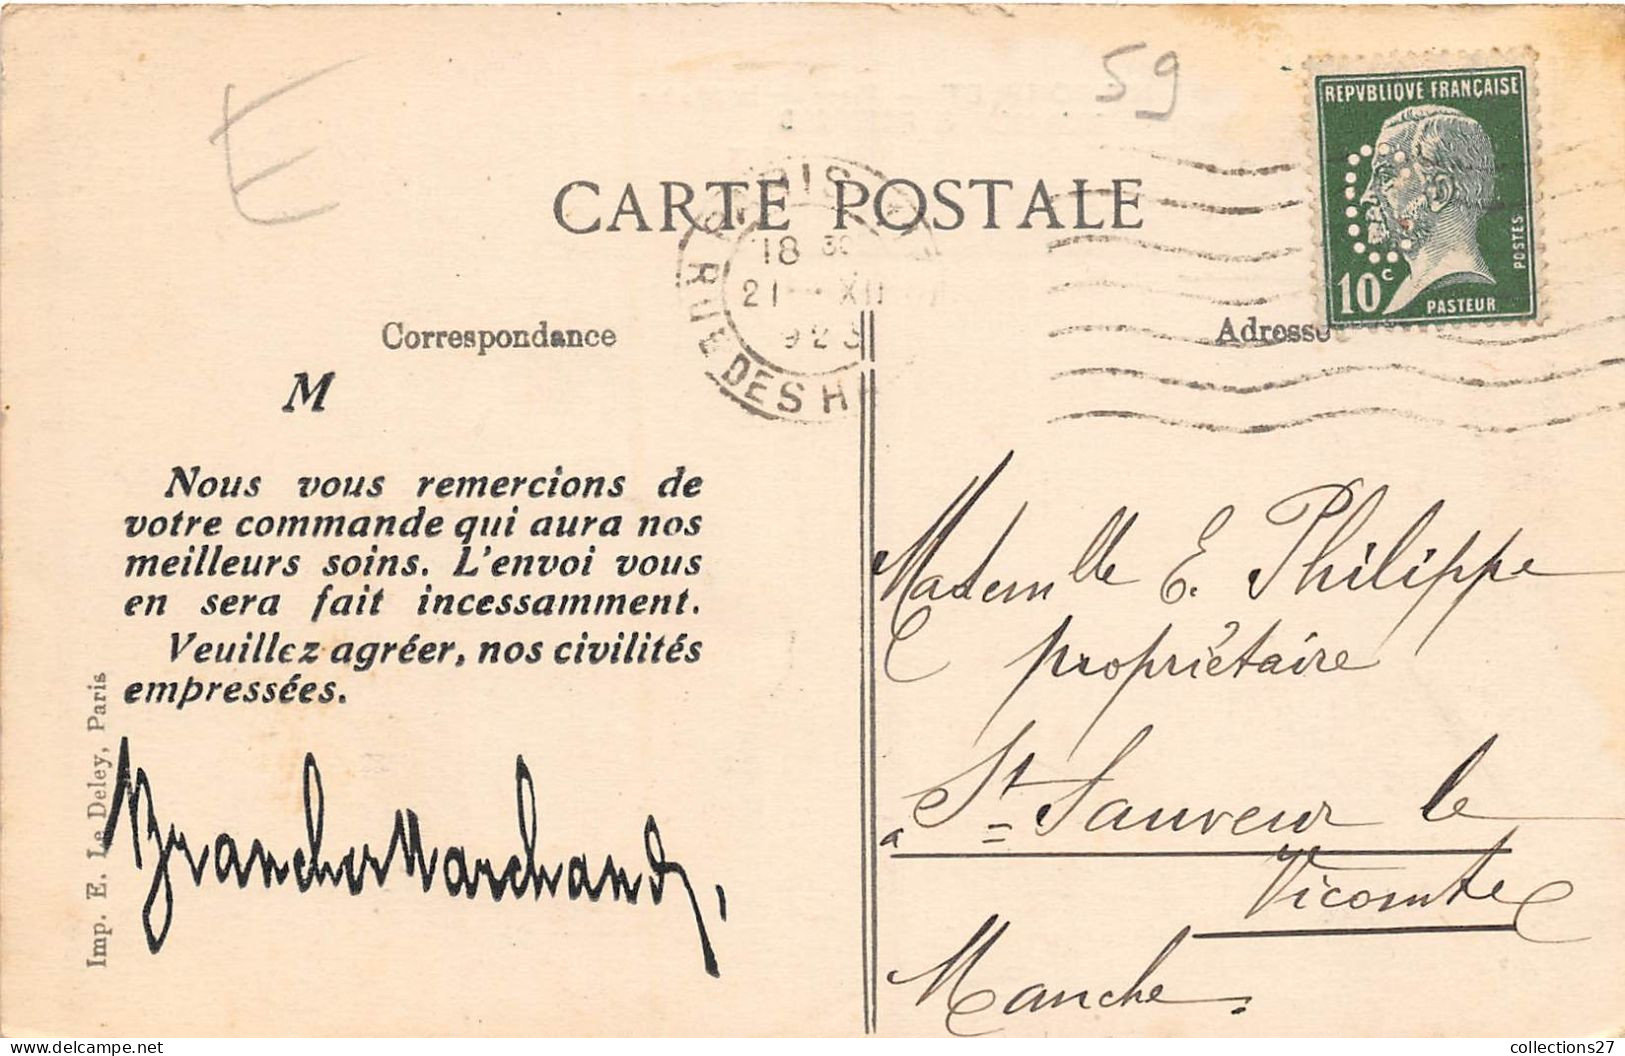 E
59
REPVBLIQVE FRANÇAISE
10c
POSTES
PASTEUR
CARTE POSTALE
18 30
21 XII
923
RUE DES H
Correspondance
Adresse
M
Nous vous remercions de
votre commande qui aura nos
meilleurs soins. L'envoi vous
en sera fait incessamment.
Veuillez agréer, nos civilités
empressées.
Imp. E. Le Deley, Paris
Mademlle E. Philippe
propriétaire
a St Sauveur le
Vicomte
Manche
collections27